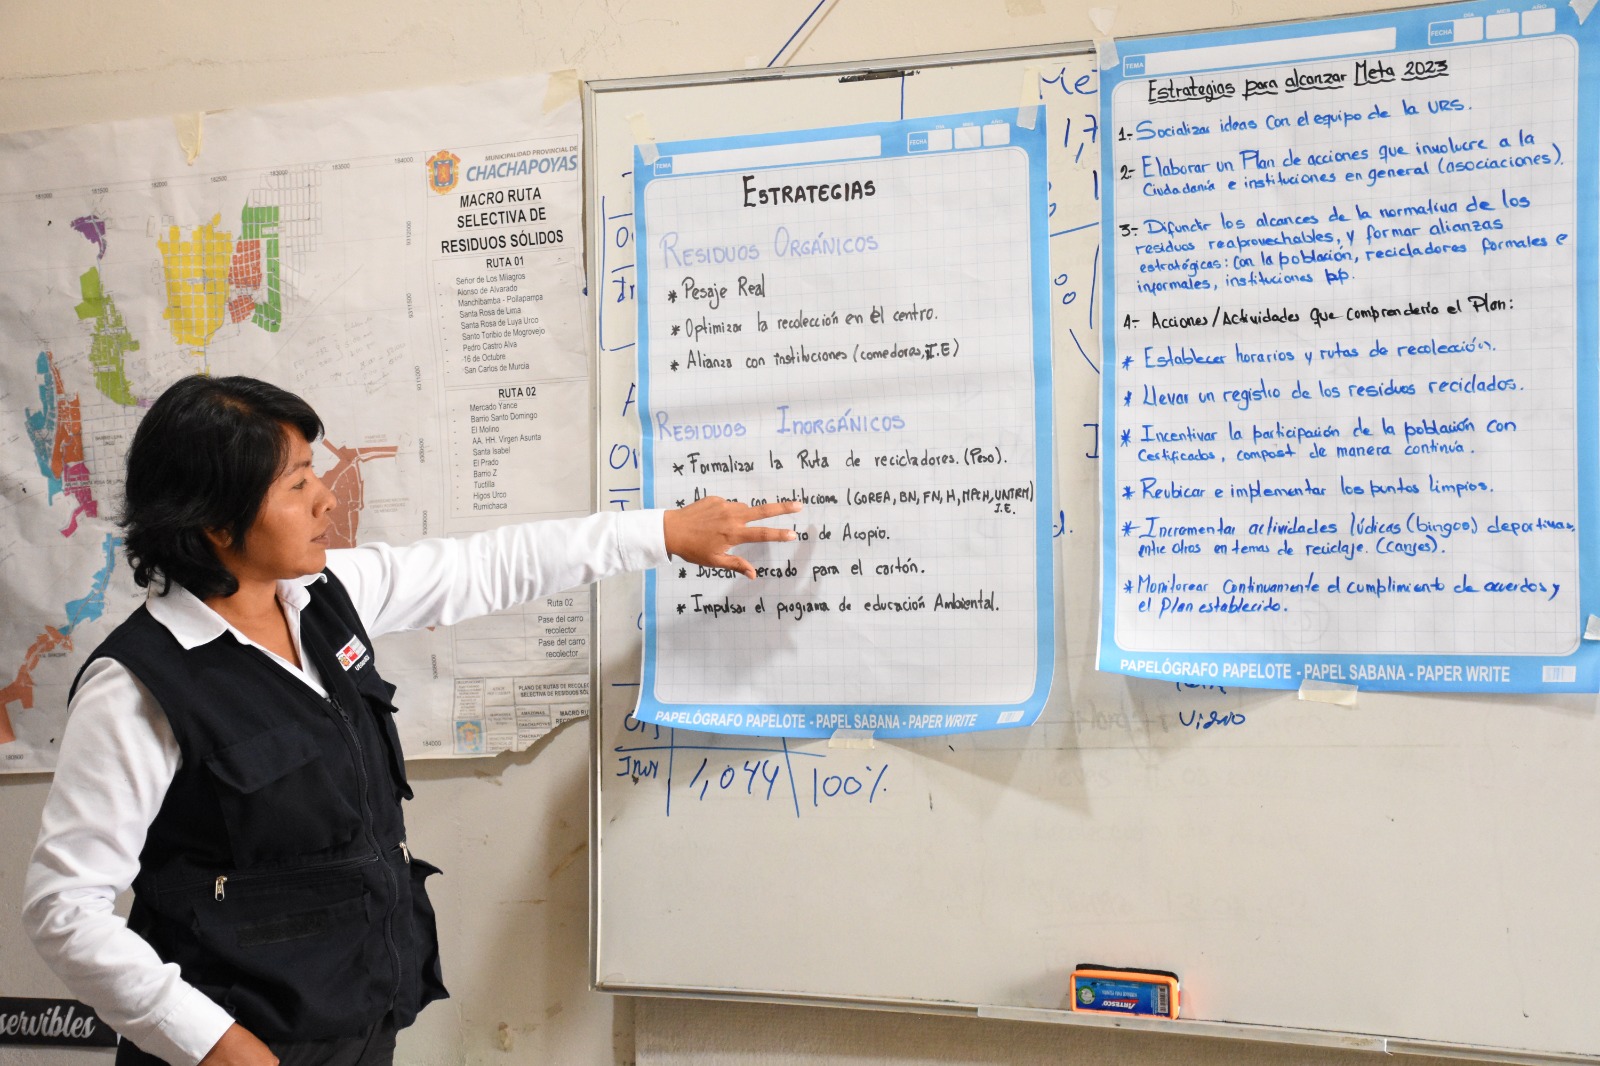 MUNICIPALIDAD PROVINCIAL DE
CHACHAPOYAS
MACRO RUTA
SELECTIVA DE
RESIDUOS SÓLIDOS
RUTA 01
- Señor de Los Milagros
- Alonso de Alvarado
- Manchibamba - Pollapampa
- Santa Rosa de Lima
- Santa Rosa de Luya Urco
- Santo Toribio de Mogrovejo
- Pedro Castro Alva
- 16 de Octubre
- San Carlos de Murcia
RUTA 02
- Mercado Yance
- Barrio Santo Domingo
- El Molino
- AA. HH. Virgen Asunta
- Santa Isabel
- El Prado
- Barrio Z
- Tuctilla
- Higos Urco
- Rumichaca
Ruta 02
Pase del carro
recolector
Pase del carro
recolector
PLANO DE RUTAS DE RECOLEC
SELECTIVA DE RESIDUOS SÓL
TEMA
FECHA
ESTRATEGIAS
RESIDUOS ORGÁNICOS
* Pesaje Real
* Optimizar la recolección en el centro.
* Alianza con instituciones (comedores, I.E)
RESIDUOS INORGÁNICOS
* Formalizar la Ruta de recicladores. (Peso).
* con instituciones (GOREA, BN, FN, H, MPCH, UNTRM)
I.E.
ro de Acopio.
* Buscar mercado para el cartón.
* Impulsar el programa de educación Ambiental.
PAPELÓGRAFO PAPELOTE - PAPEL SABANA - PAPER WRITE
TEMA
FECHA
DIA
MES
AÑO
Estrategias para alcanzar Meta 2023
1.- Socializar ideas con el equipo de la URS.
2.- Elaborar un Plan de acciones que involucre a la
Ciudadanía e instituciones en general (asociaciones).
3.- Difundir los alcances de la normativa de los
residuos reaprovechables, y formar alianzas
estratégicas: con la población, recicladores formales e
informales, instituciones pp.
4.- Acciones/Actividades que comprendería el Plan:
* Establecer horarios y rutas de recolección.
* Llevar un registro de los residuos reciclados.
* Incentivar la participación de la población con
Certificados, compost de manera continua.
* Reubicar e implementar los puntos limpios.
* Incrementar actividades lúdicas (bingos) deportivas,
entre otros en temas de reciclaje. (canjes).
* Monitorear continuamente el cumplimiento de acuerdos y
el Plan establecido.
PAPELÓGRAFO PAPELOTE - PAPEL SABANA - PAPER WRITE
Vidrio
Inor 1,044 100%
ARTESCO
servibles